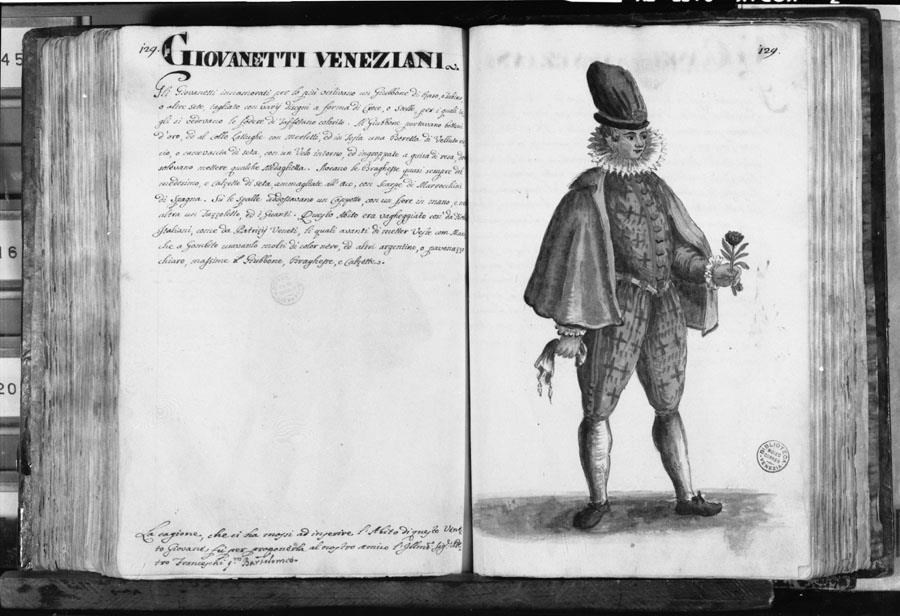 129.
GIOVANETTI VENEZIANI
Gli Giovanetti innamorati per lo più vestivano un Giubbone di Raso,
o altre sete, tagliato con varij disegni a forma di Croce, o Stelle, per i quali
gli si vedevano le fodere di Taffetano colorito. Al Giubbone portavano bottoni
d'oro, ed al collo Lattughe con merletti, ed in Testa una Boretta di Velluto
o ormesin di seta, con un Velo intorno, ed ingroppate a guisa di rosa,
solevano mettere qualche Medaglietta. Aveano le Braghesse quasi sempre del
medesimo, e calzette di seta, ammagliate all'aco, con scarpe di Marocchini
di Spagna. Su le Spalle addossavano un Cappotto con un fiore in mano, e
altra un Fazzoletto, ed i Guanti. Questo Abito era vagheggiato così da
Italiani, come da Patrizij Veneti, li quali avanti di metter Veste con
a Gombito usavanlo molti di color nero, ed altri argentino, o pavonazzo
chiaro, massime il Giubbone, Braghesse, e Calzette.
La cagione, che ci ha mossi ad inserire l'Abito di questo
Giovane, fù per proponerla al nostro amico
Franceschi Bartolomeo
129.
BIBLIOTECA
MUSEO
CORRER
VENEZIA